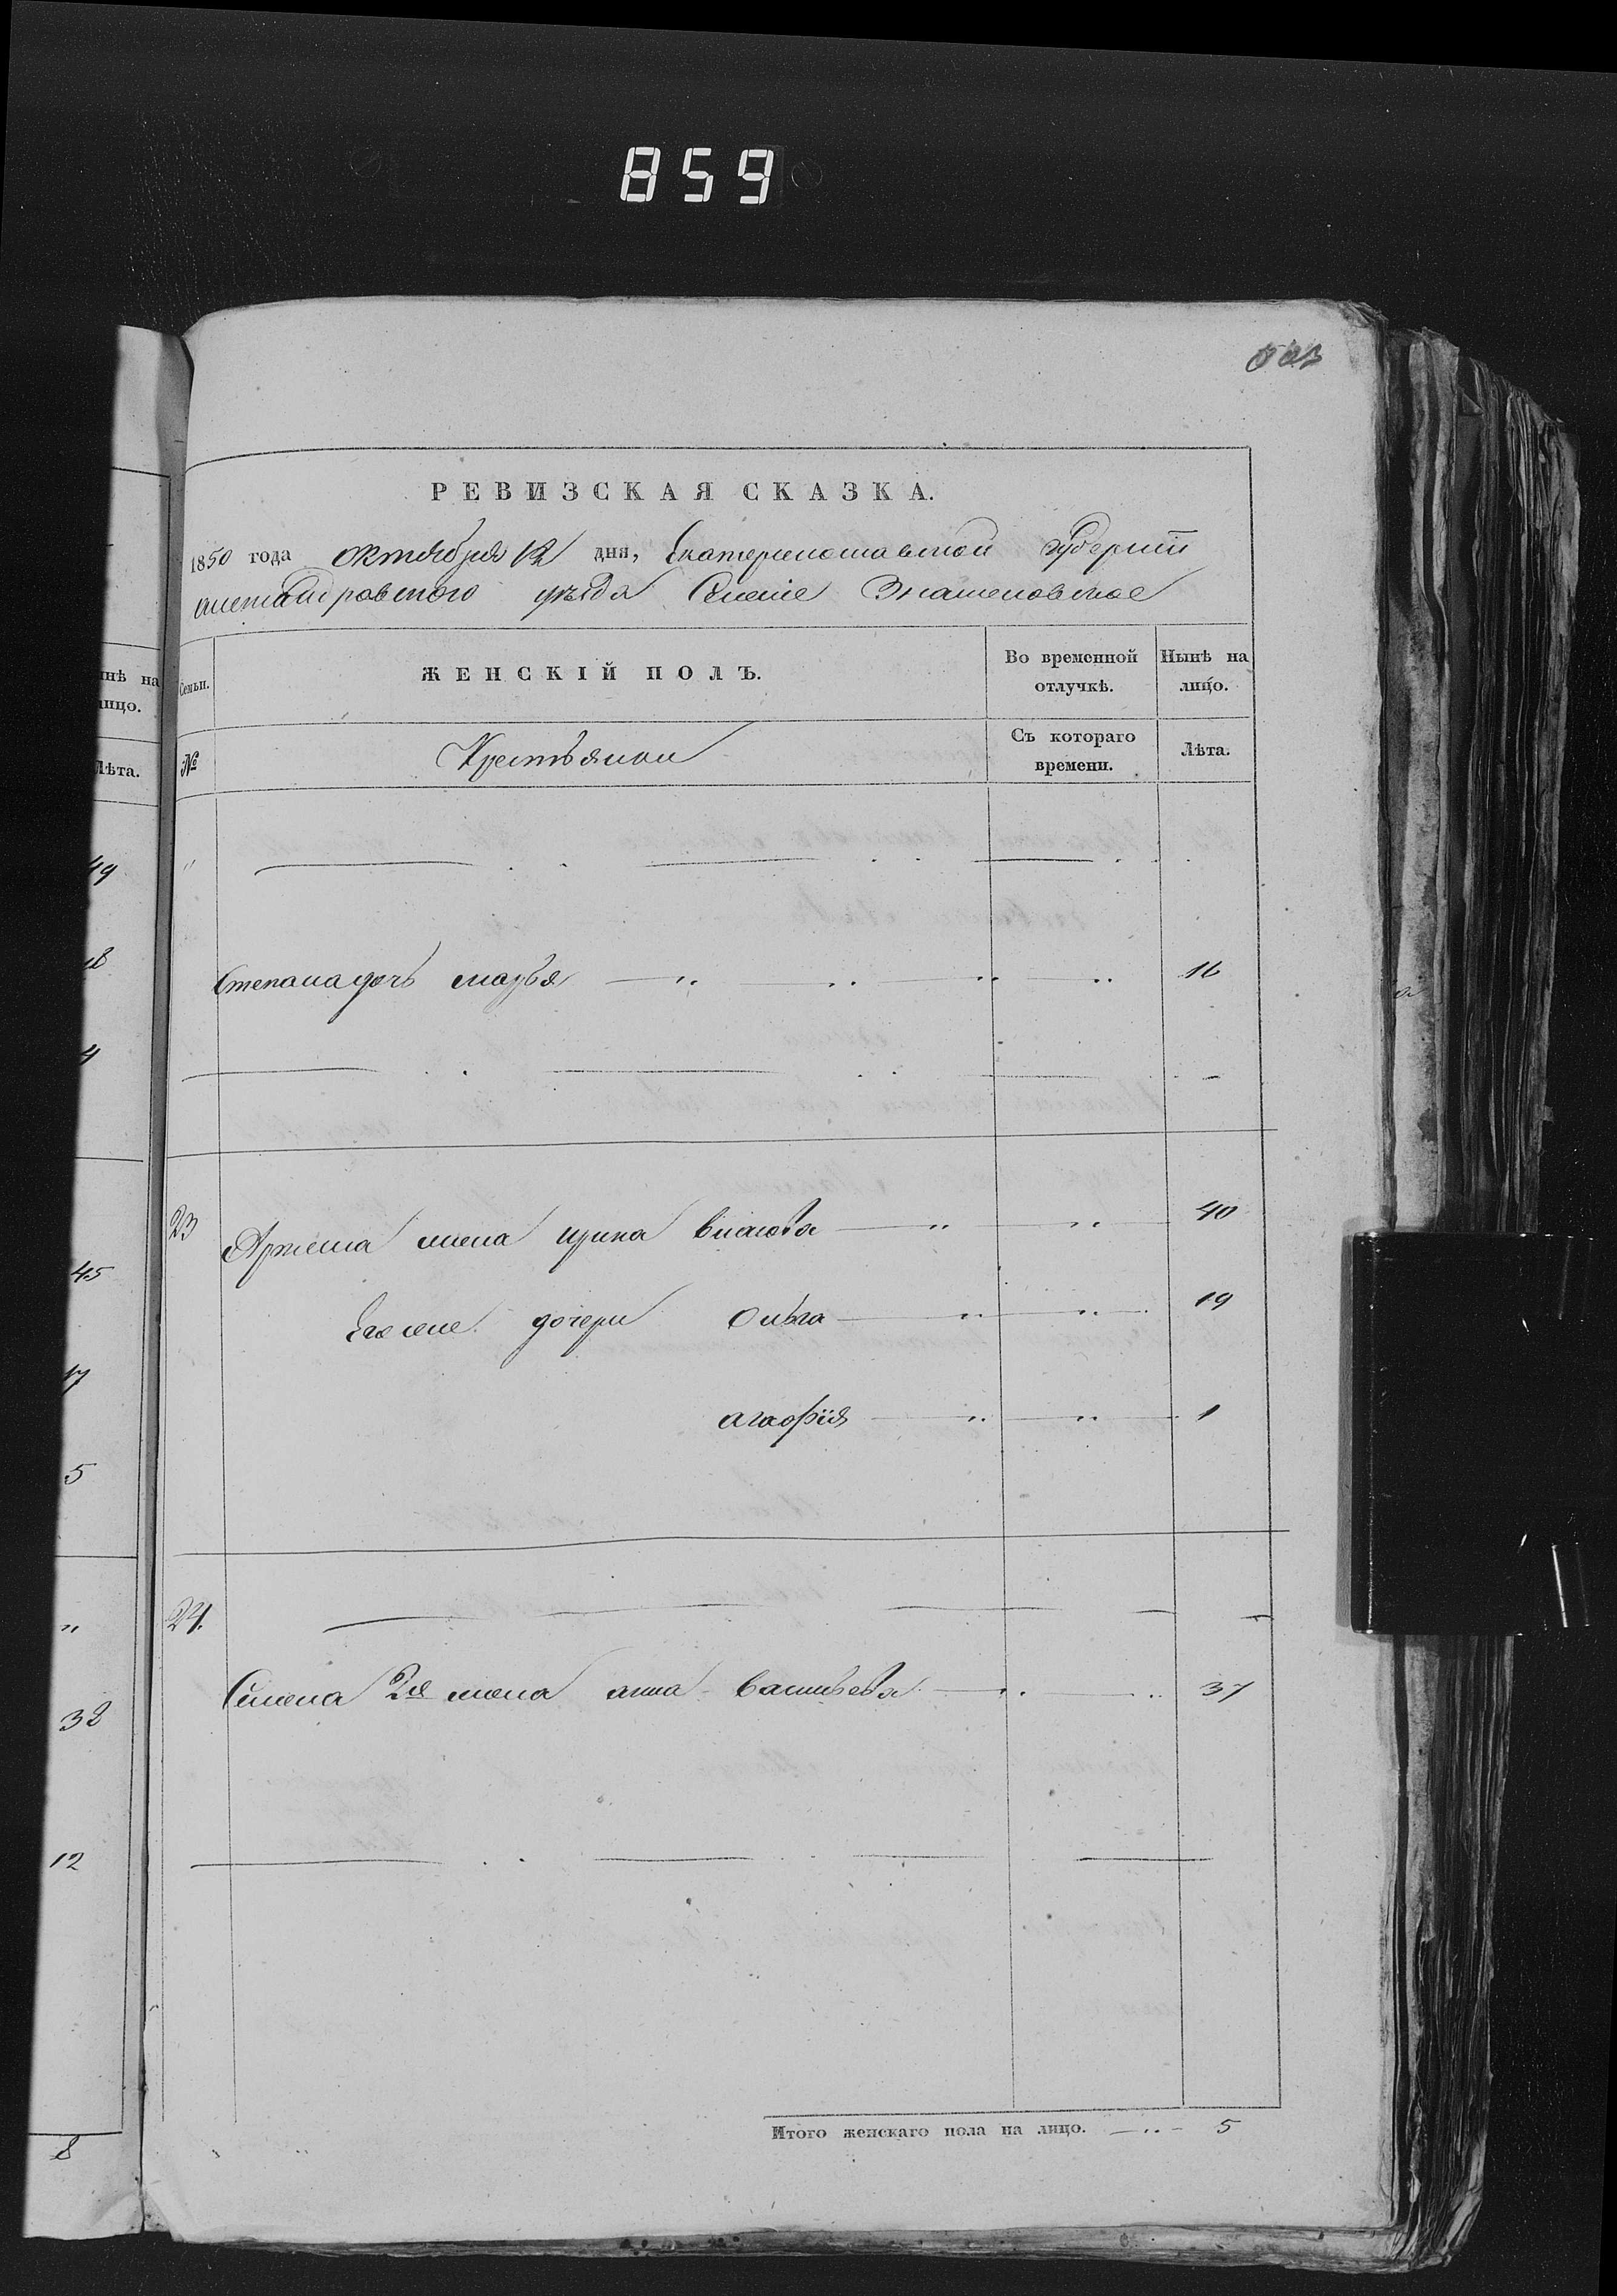 859
503
РЕВИЗСКАЯ СКАЗКА.
1850 года октября 12 дня, Екатеринославской губернии
александровского уезда Селеніе Знаменовское
Семьи.
ЖЕНСКІЙ ПОЛЪ.
Во временной отлучкѣ.
Нынѣ на лицо.
№
Крестьянки
Съ котораго времени.
Лѣта.
Степана дочь марья 16
23 Артема жена ирина власова 40
Его же дочери Ольга 19
агафія 1
24.
Семена 2я жена анна васильева 37
Итого женскаго пола на лицо. 5
нѣ на
лицо.
Лѣта.
49
18
4
45
17
5
"
32
12
8